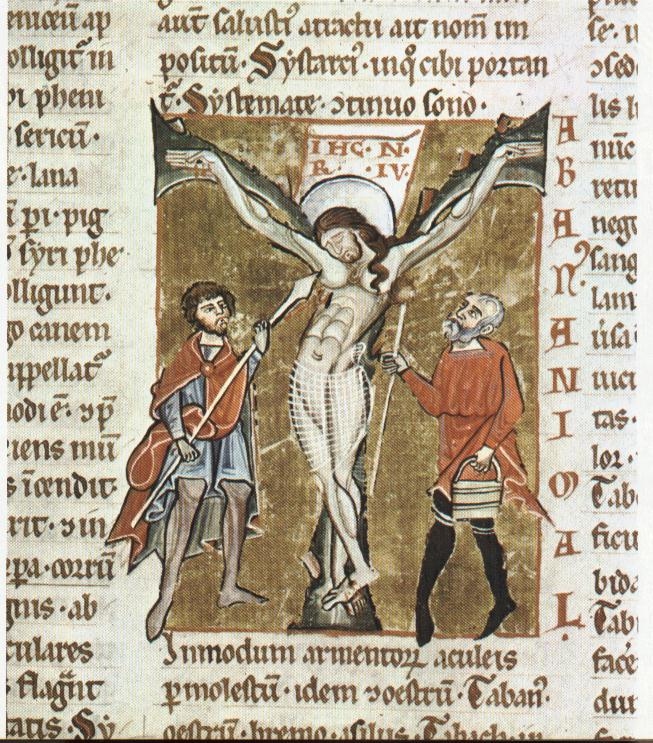 enicuū ap
olligit̄ in
pi pheni
sericū·
e·lana
ū pi·pig
syri phe
olligunt·
o canem
appellat̄
nodi ē·
iens mū
s īcendit
rit·ɔ in
rpa·corrū
gnis·ab
culares
flagn̄t
tatis·Sy
aut salustiꝰ atractu ait nom̄ im
positū·Systarciꝰ·inq̊ cibi portan
t̄·Systemate·ɔtinuo sono·
IHC·N·
R·IV·
Inmodum armentoꝝ aculeis
ꝑmolestū·idem ɔoestrū·Tabanꝰ·
oestrū·bremo·asilus·Tabich·in
A
B
A
Nꝰ
A
N
I
M
A
L
se·
ɔsed
lis
nūc
retu
nego
sang
lani
uisa
iuci
tas·
lor·
Tab
ficu
bida
Tab
face
dur